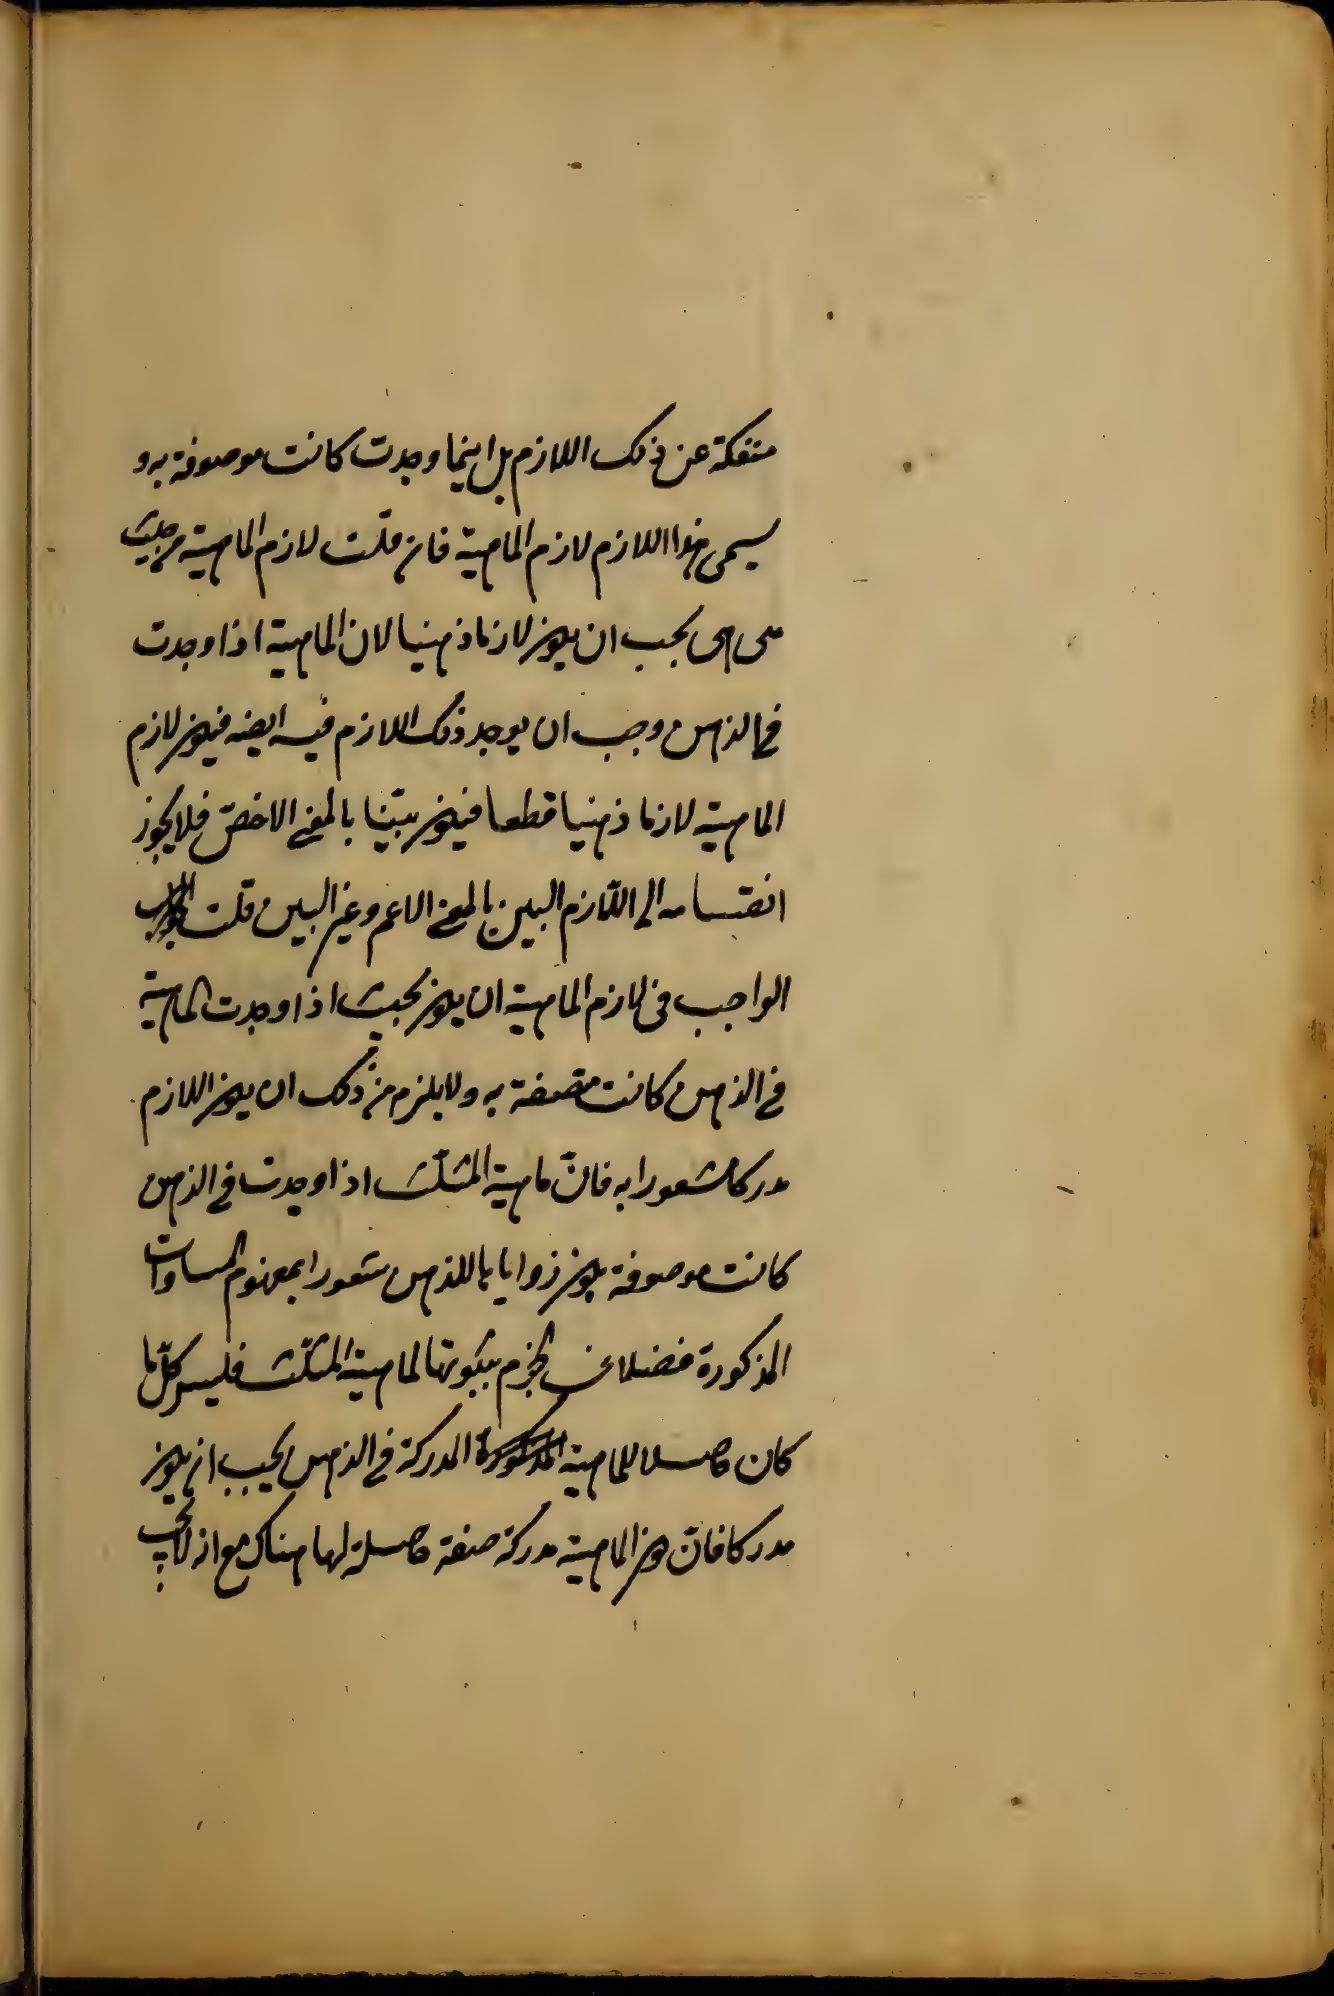 منفكة عن ذلك اللازم بل اينما وجدت كانت موصوفة به و
يسمى هذا اللازم لازم الماهية فان قلت لازم الماهية من حيث
هى هى يجب ان يكون لازما ذهنيا لان الماهية اذا وجدت
فى الذهن وجب ان يوجد ذلك اللازم فيه ايضه فيكون لازم
الماهية لازما ذهنيا قطعا فيكون بيّنا بالمعنى الاخصّ فلا يجوز
انقسامه الى اللّازم البين بالمعنى الاعم وغير البين قلت
الواجب فى لازم الماهية ان يكون بحيث اذا وجدت الماهية
فى الذهن كانت متصفة به ولا يلزم من ذلك ان يكون اللازم
مدركا مشعورا به فانّ ماهية المثلّث اذا وجدت فى الذهن
كانت موصوفة بكون زواياها للذهن شعور بمفهوم المساوات
المذكورة فضلا عن الجزم بثبوتها لماهية المثلّث فليس كلّ ما
كان حاصلا للماهية المذكورة المدركة فى الذهن يجب ان يكون
مدركا فانّ كون الماهية مدركة صفة حاصلة لها هناك مع انه لا يجب